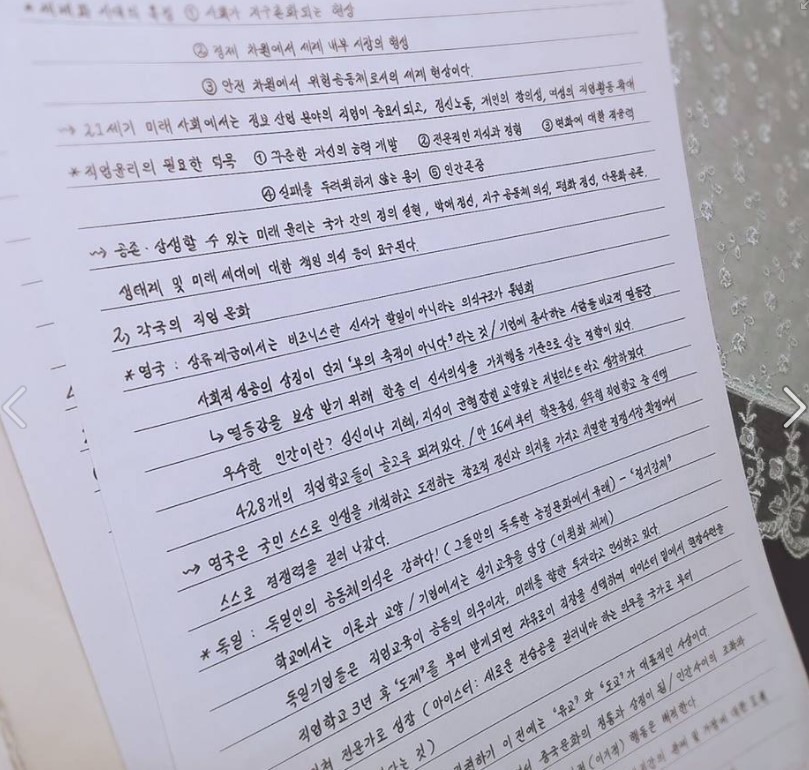 * 세계화 시대의 특징 ① 사회가 지구촌화되는 현상
② 경제 차원에서 세계 내부 시장의 형성
③ 안전 차원에서 위험공동체로서의 세계 현상이다.
→ 21세기 미래 사회에서는 정보 산업 분야의 직업이 중요시되고, 정신노동, 개인의 창의성, 여성의 직업활동 확대
* 직업윤리의 필요한 덕목 ① 꾸준한 자신의 능력 개발 ② 전문적인 지식과 경험 ③ 변화에 대한 적응력
④ 실패를 두려워하지 않는 용기 ⑤ 인간존중
→ 공존·상생할 수 있는 미래 윤리는 국가 간의 정의 실현, 박애 정신, 지구 공동체 의식, 평화 정신, 다문화 공존,
생태계 및 미래 세대에 대한 책임 의식 등이 요구된다.
2) 각국의 직업 문화
* 영국 : 상류계급에서는 비즈니스란 신사가 할일이 아니라는 의식구조가 통념화
사회적 성공의 상징이 단지 '부의 축적이 아니다.' 라는 것 / 기업에 종사하는 사람들 비교적 열등감
↳ 열등감을 보상 받기 위해 한층 더 신사의식을 가치행동 기준으로 삼는 경향이 있다.
우수한 인간이란? 심신이나 지혜, 지식이 균형잡힌 교양있는 제널리스트라고 생각하였다.
428개의 직업학교들이 골고루 퍼져있다. / 만 16세부터 학문중심, 실무형 직업학교 중 선택
→ 영국은 국민 스스로 인생을 개척하고 도전하는 창조적 정신과 의지를 가지고 치열한 경쟁시장 환경에서
스스로 경쟁력을 길러 나갔다.
* 독일 : 독일인의 공동체의식은 강하다! (그들만의 독특한 농경문화에서 유래) - '경지강제'
학교에서는 이론과 교양 / 기업에서는 실기교육을 담당 (이원화 체제)
독일기업들은 직업교육이 공동의 의무이자, 미래를 향한 투자라고 인식하고 있다.
직업학교 3년 후 '도제'를 부여 받게되면 자유로이 직장을 선택하여 마이스터 밑에서 현장수련을
전문가로 성장 (마이스터: 새로운 견습공을 길러내야 하는 의무를 국가로 부터
것)
이 전에는 '유교'와 '도교'가 대표적인 사상이다.
중국문화의 정통과 상징이 됨 / 인간사이의 조화와
(이기적) 행동은 배척한다